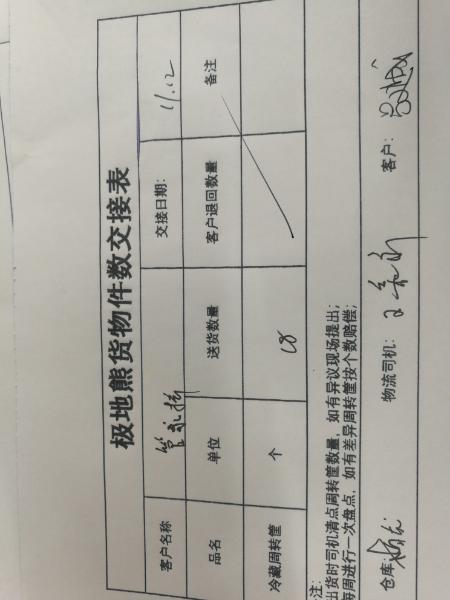 极地熊货物件数交接表
客户名称 交接日期: 11.12
品名 单位 送货数量 客户退回数量 备注
冷藏周转筐 个 18
注:
出货时司机清点周转筐数量,如有异议现场提出;
每周进行一次盘点,如有差异周转筐按个数赔偿;
仓库: 物流司机: 客户: